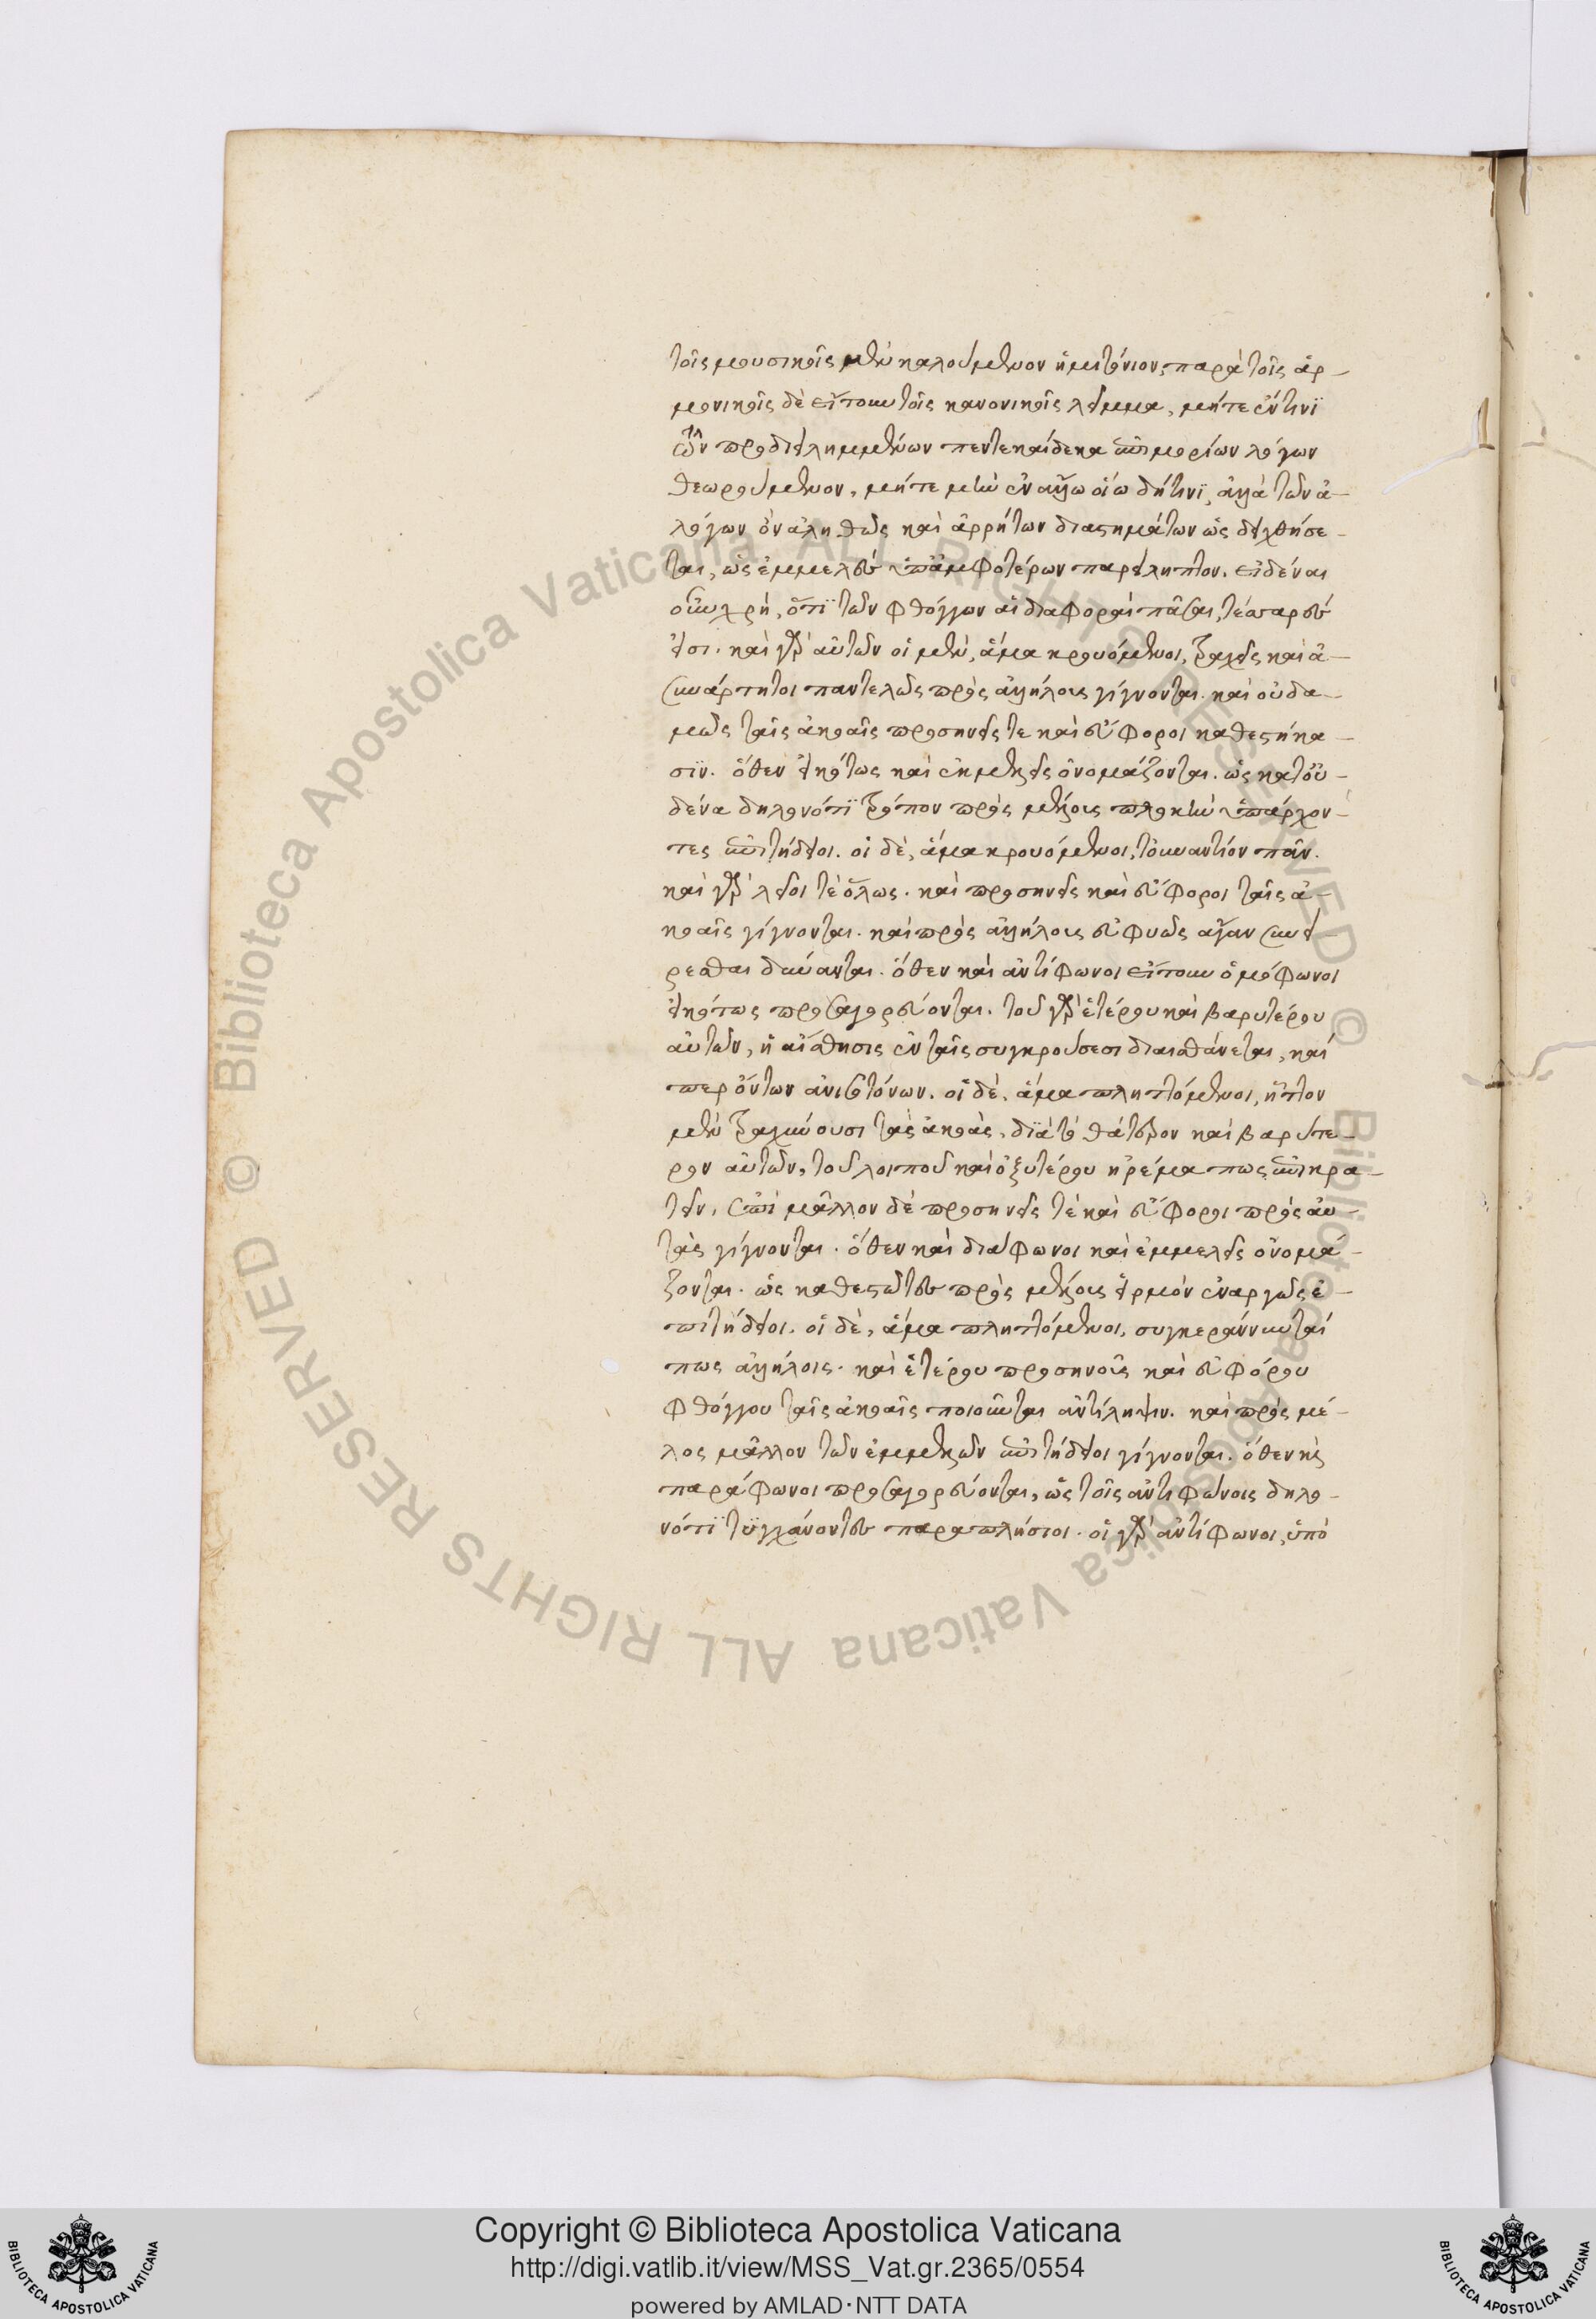 τοῖς μουσικοῖς μὲν καλούμενον ἡμιτόνιον, παρὰ τοῖς ἁρ-
μονικοῖς δὲ εἴτουν τοῖς κανονικοῖς λεῖμμα, μήτε ἔν τινι
τῶν προδιειλημμένων πεντεκαίδεκα ἐπιμορίων λόγων
θεωρούμενον, μήτε μὴν ἐν ἄλλω οἵω δήτινι, ἀλλὰ τῶν ἀ-
λόγων ὂν ἀληθῶς καὶ ἀρρήτων διαστημάτων ὡς δειχθήσε-
ται, ὡς ἐμμελὲς ὑπ' ἀμφοτέρων παρείληπτον. εἰδέναι
οὖν χρὴ, ὅτι τῶν φθόγγων αἱ διαφοραὶ πᾶσαι, τέσσαρες
εἰσι. καὶ γὰρ αὐτῶν οἱ μὲν, ἅμα κρουόμενοι, τραχεῖς καὶ ἀ-
συνάρτητοι παντελῶς πρὸς ἀλλήλους γίγνονται. καὶ οὐδα-
μῶς ταῖς ἀκοαῖς προσηνεῖς τε καὶ εὔφοροι καθεστήκα-
σιν. ὅθεν εἰκότως καὶ ἐκμελεῖς ὀνομάζονται. ὡς κατ' οὐ-
δένα δηλονότι τρόπον πρὸς μέλους πλοκὴν ὑπάρχον-
τες ἐπιτήδειοι. οἱ δὲ, ἅμα κρουόμενοι, τοὐναντίον πᾶν.
καὶ γὰρ λεῖοι τὲ ὅλως. καὶ προσηνεῖς καὶ εὔφοροι ταῖς ἀ-
κοαῖς γίγνονται. καὶ πρὸς ἀλλήλους εὐφυῶς ἄγαν συνεί-
ρεσθαι δύνανται. ὅθεν καὶ ἀντίφωνοι εἴτουν ὁμόφωνοι
εἰκότως προσαγορεύονται. τοῦ γὰρ ἑτέρου καὶ βαρυτέρου
αὐτῶν, ἡ αἴσθησις ἐν ταῖς συγκρούσεσι διαισθάνεται, καί
περ ὄντων ἀνισοτόνων. οἱ δὲ, ἅμα πληττόμενοι, ἧττον
μὲν τραχύνουσι τὰς ἀκοὰς, διὰ τὸ θάτερον καὶ βαρύτε-
ρον αὐτῶν, τοῦ λοιποῦ καὶ ὀξυτέρου ἠρέμα πως ἐπικρα-
τεῖν, ἐπὶ μᾶλλον δὲ προσηνεῖς τὲ καὶ εὔφοροι πρὸς αὐ-
τὰς γίγνονται. ὅθεν καὶ διάφωνοι καὶ ἐμμελεῖς ὀνομά-
ζονται. ὡς καθεστῶτες πρὸς μέλους εἱρμὸν ἐναργῶς ἐ-
πιτήδειοι. οἱ δὲ, ἅμα πληττόμενοι, συγκεράννυνταί
πως ἀλλήλοις. καὶ ἑτέρου προσηνοῦς καὶ εὐφόρου
φθόγγου ταῖς ἀκοαῖς ποιοῦνται ἀντίληψιν. καὶ πρὸς μέ-
λος μᾶλλον τῶν ἐμμελῶν ἐπιτήδειοι γίγνονται. ὅθεν κὶ
παράφωνοι προσαγορεύονται, ὡς τοῖς ἀντιφώνοις δηλο-
νότι τυγχάνοντες παραπλήσιοι. οἱ γὰρ ἀντίφωνοι, ὑπὸ
© Biblioteca Apostolica Vaticana ALL RIGHTS RESERVED © Biblioteca Apostolica Vaticana ALL RIGHTS RESERVED
Copyright © Biblioteca Apostolica Vaticana
http://digi.vatlib.it/view/MSS_Vat.gr.2365/0554
powered by AMLAD·NTT DATA
BIBLIOTECA APOSTOLICA VATICANA
BIBLIOTECA APOSTOLICA VATICANA